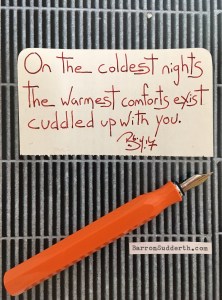 On the coldest nights
the warmest comforts exist
cuddled up with you.
BarronSudderth.com